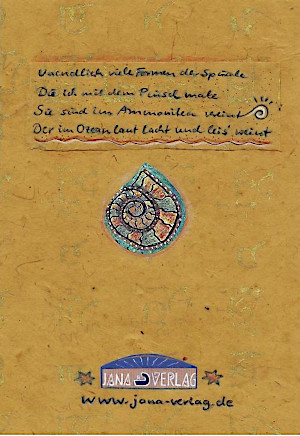 Unendlich viele Formen der Spirale
Die ich mit dem Pinsel male
Sie sind im Ammoniten vereint
Der im Ozean laut lacht und leis' weint
JANA VERLAG
www.jana-verlag.de